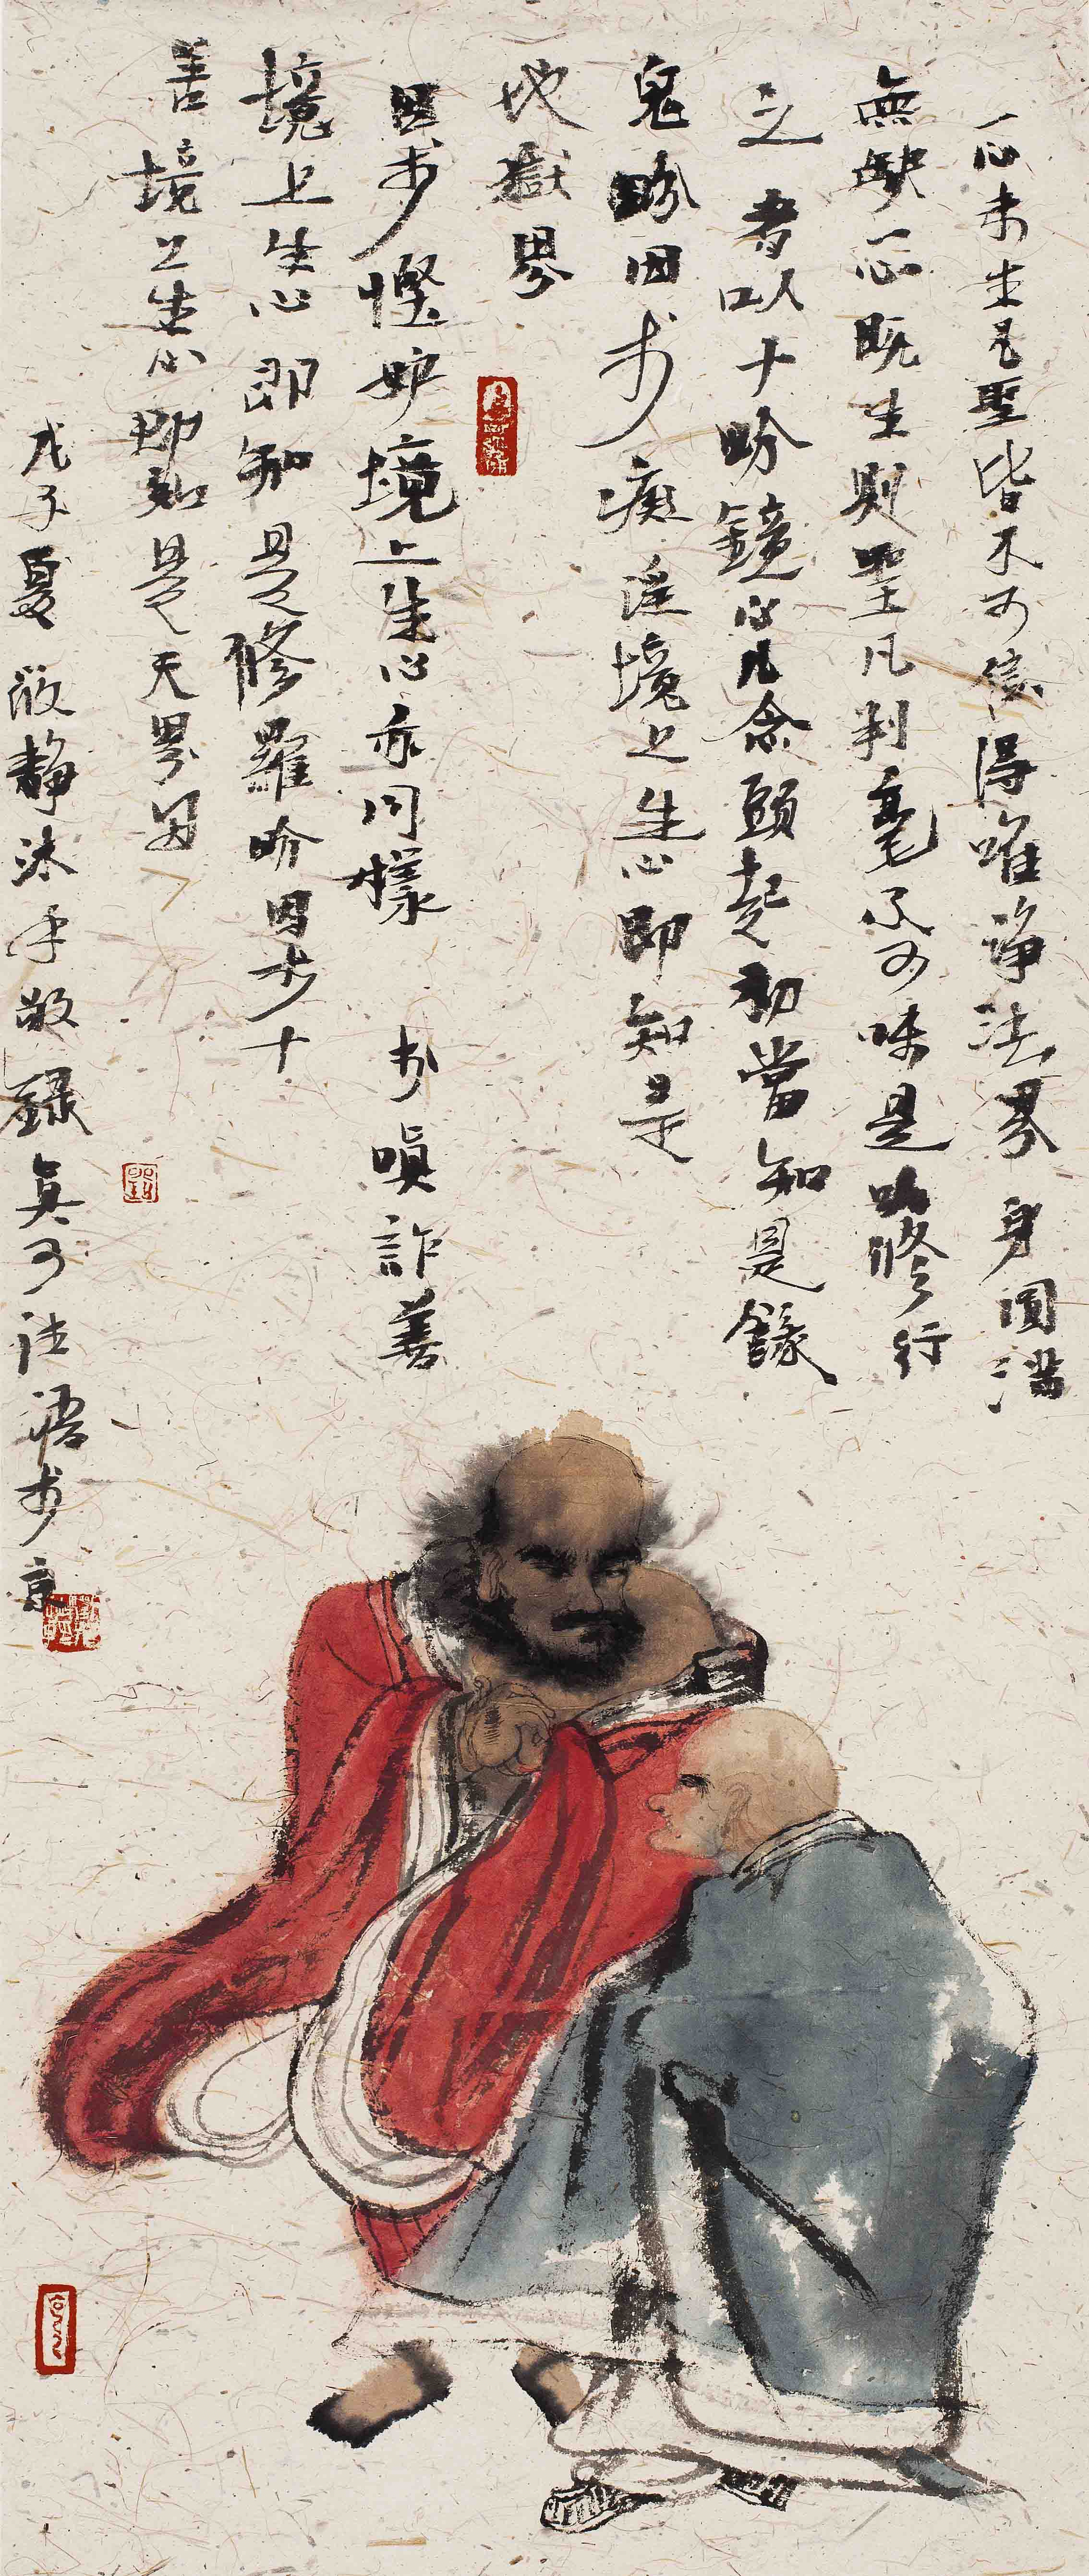 一心未生凡聖皆不可得唯諍法界身圓滿
無缺一心既生則聖凡判毫不可昧是以修行
之者以十畍鏡心凡念頭起初當知是餓
鬼畍因於癡淫境上生心即知是
地獄界
因於慳妒境上生心亦同樣於嗔詐善
境上生心即知是修羅畍因於十
善境上生心即知是天界因
戊子夏靜沐手敬錄真可法語於京